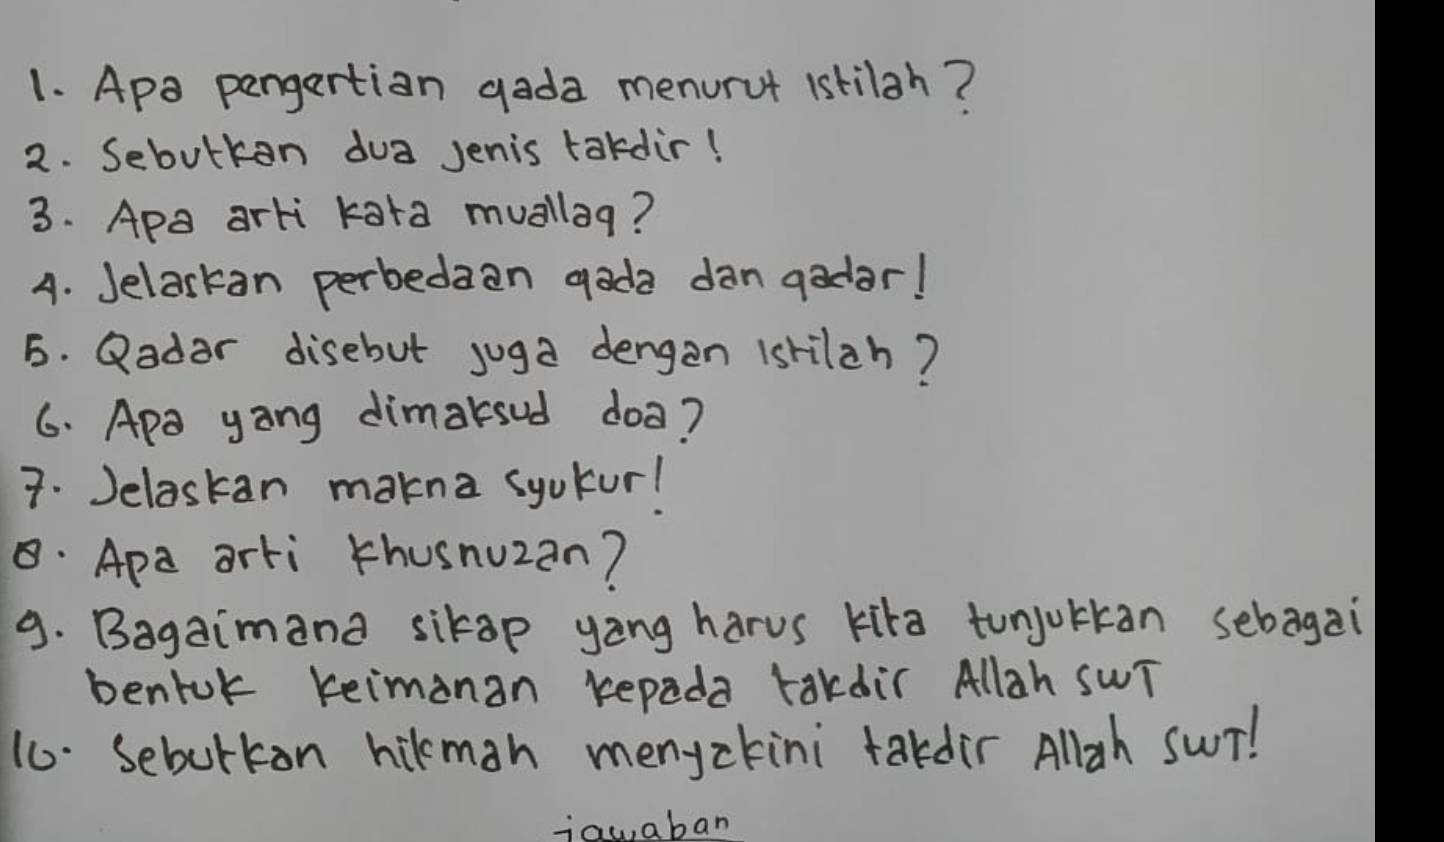 1. Apa pengertian qada menurut istilah?
2. Sebutkan dua jenis takdir!
3. Apa arti kata muallaq?
4. Jelaskan perbedaan qada dan qadar!
5. Qadar disebut juga dengan istilah?
6. Apa yang dimaksud doa?
7. Jelaskan makna syukur!
8. Apa arti khusnuzan?
9. Bagaimana sikap yang harus kita tunjukkan sebagai
bentuk keimanan kepada takdir Allah SWT
10. Sebutkan hikmah menyakini takdir Allah SWT!
jawaban